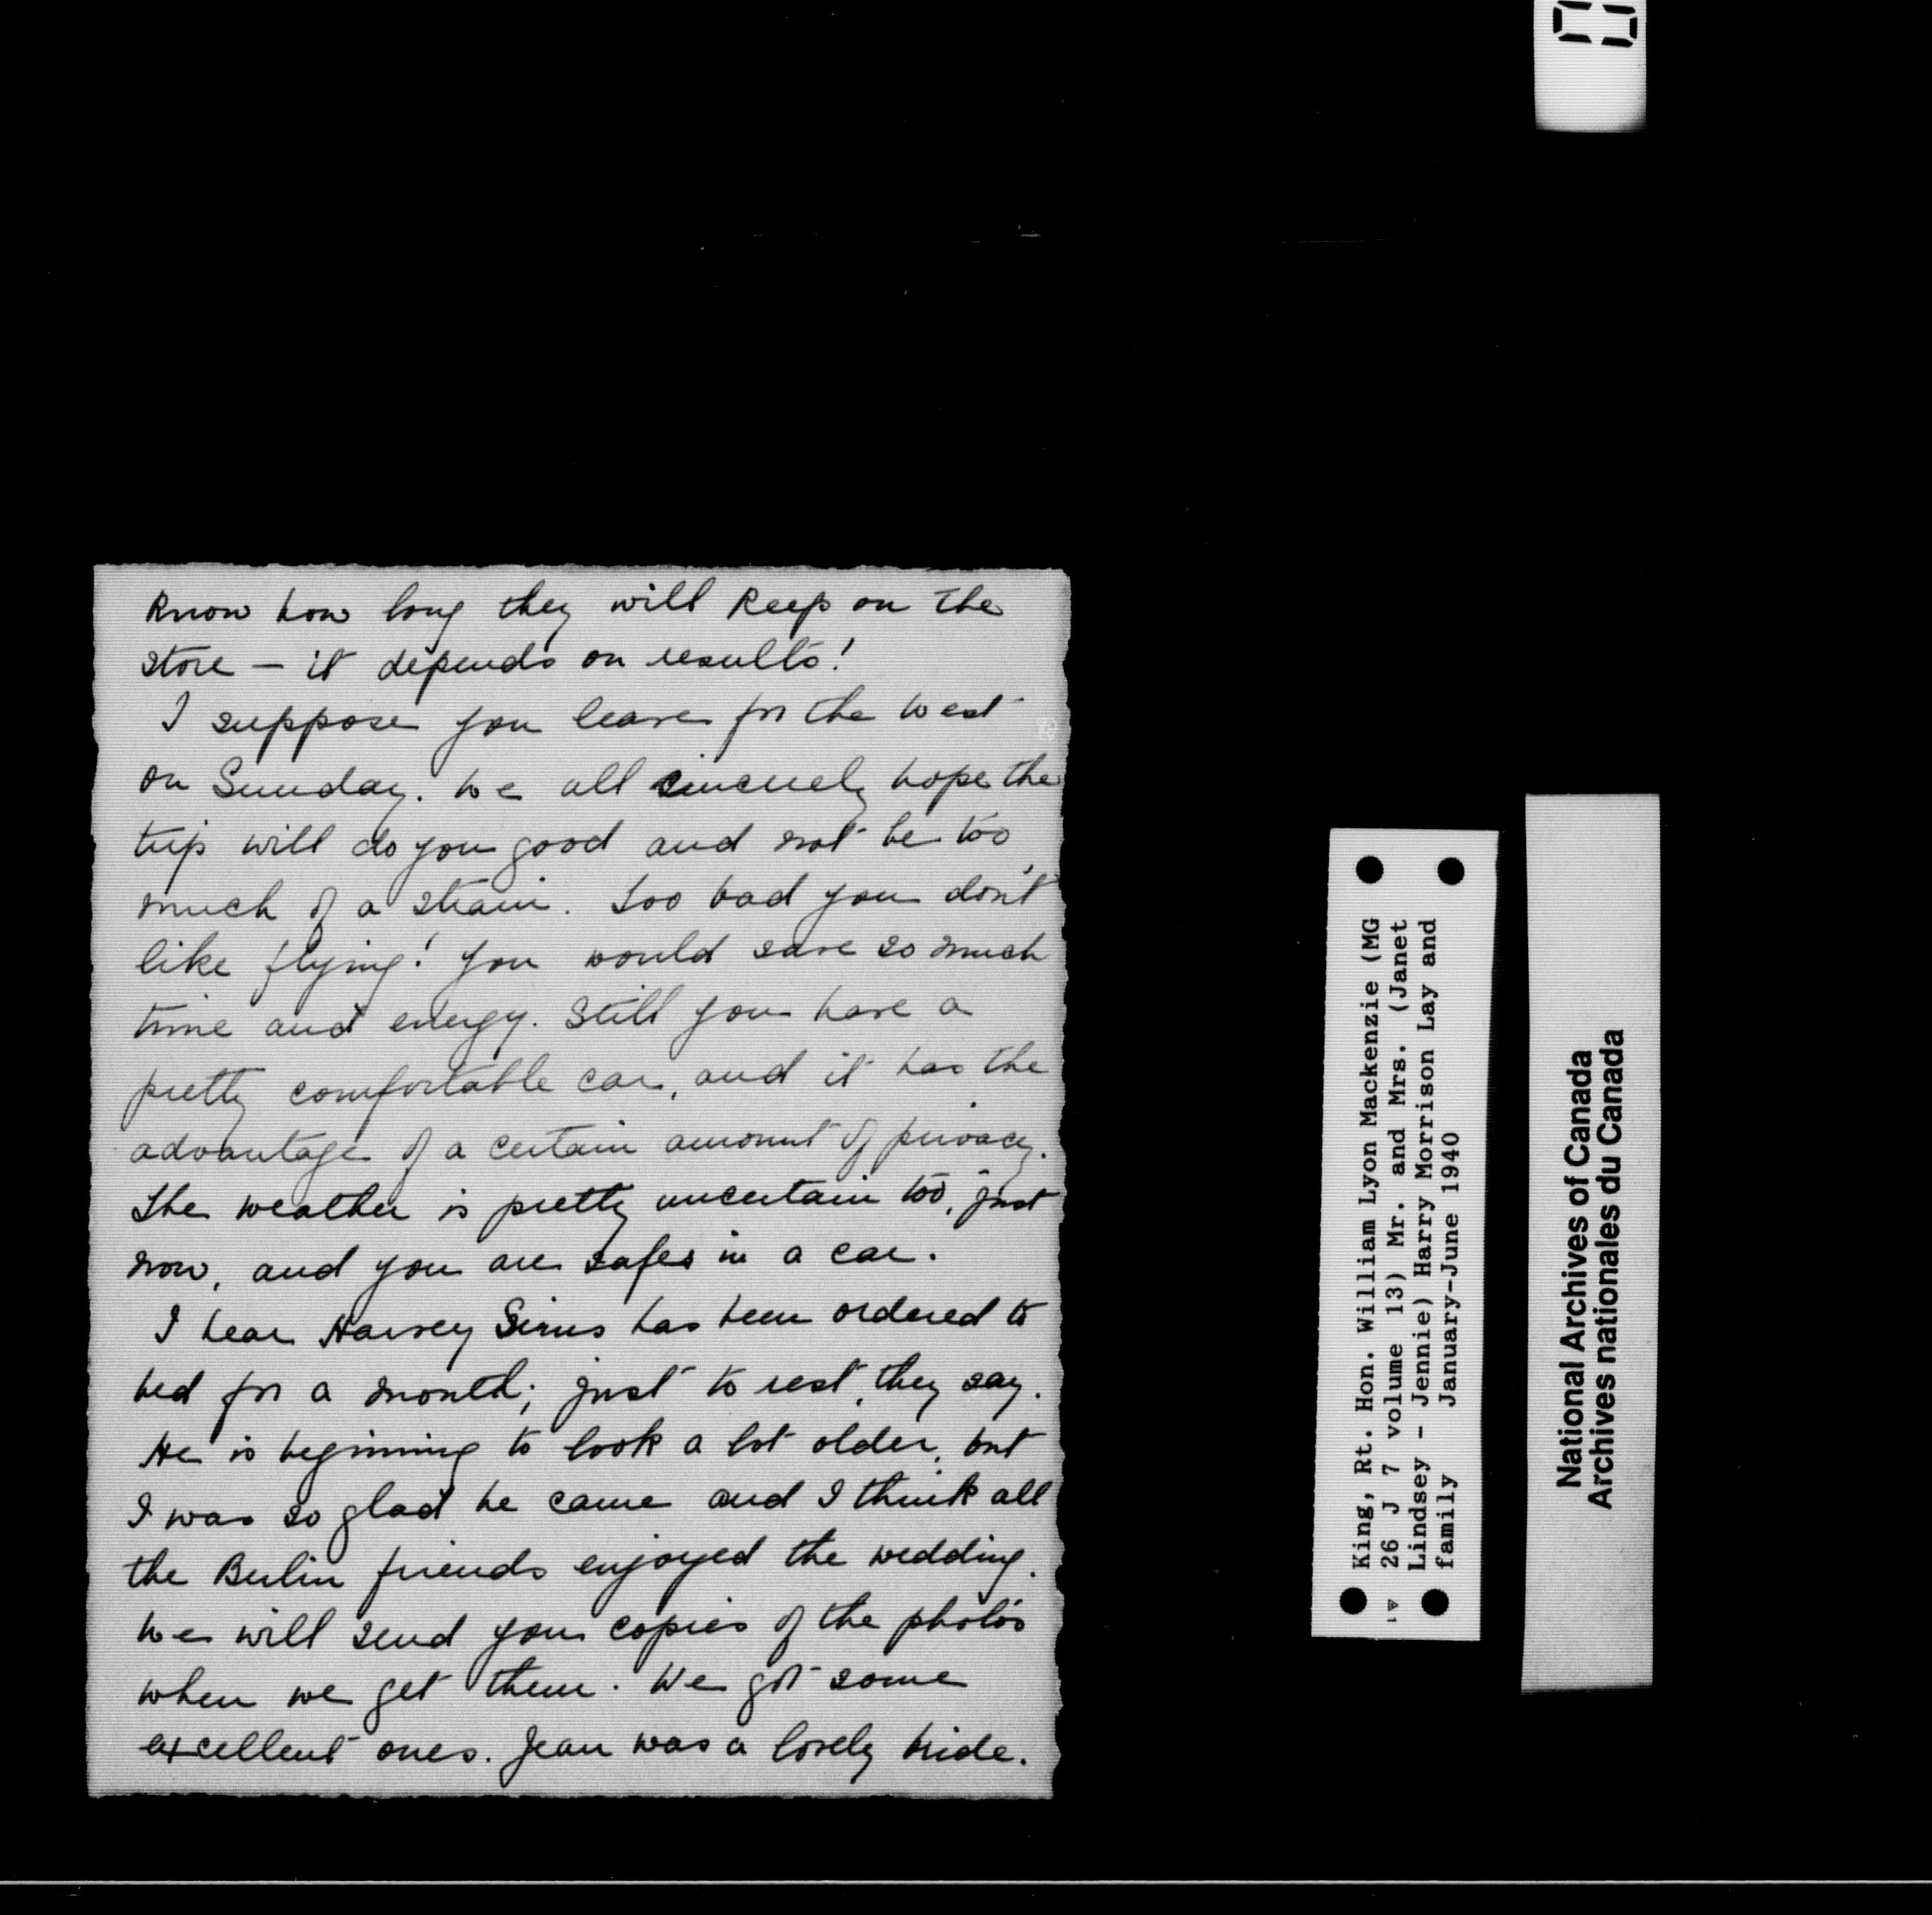 know how long they will keep on the
store — it depends on results!
I suppose you leave for the west
on Sunday. We all sincerely hope the
trip will do you good and not be too
much of a strain. Too bad you don't
like flying! You would save so much
time and energy. Still you have a
pretty comfortable car, and it has the
advantage of a certain amount of privacy.
The weather is pretty uncertain too, just
now, and you are safer in a car.
I hear Harvey Sims has been ordered to
bed for a month; just to rest, they say.
He is beginning to look a lot older, but
I was so glad he came and I think all
the Berlin friends enjoyed the wedding.
We will send you copies of the photos
when we get them. We got some
excellent ones. Jean was a lovely bride.
King, Rt. Hon. William Lyon Mackenzie (MG
26 J 7 volume 13) Mr. and Mrs. (Janet
Lindsey - Jennie) Harry Morrison Lay and
family January-June 1940
National Archives of Canada
Archives nationales du Canada